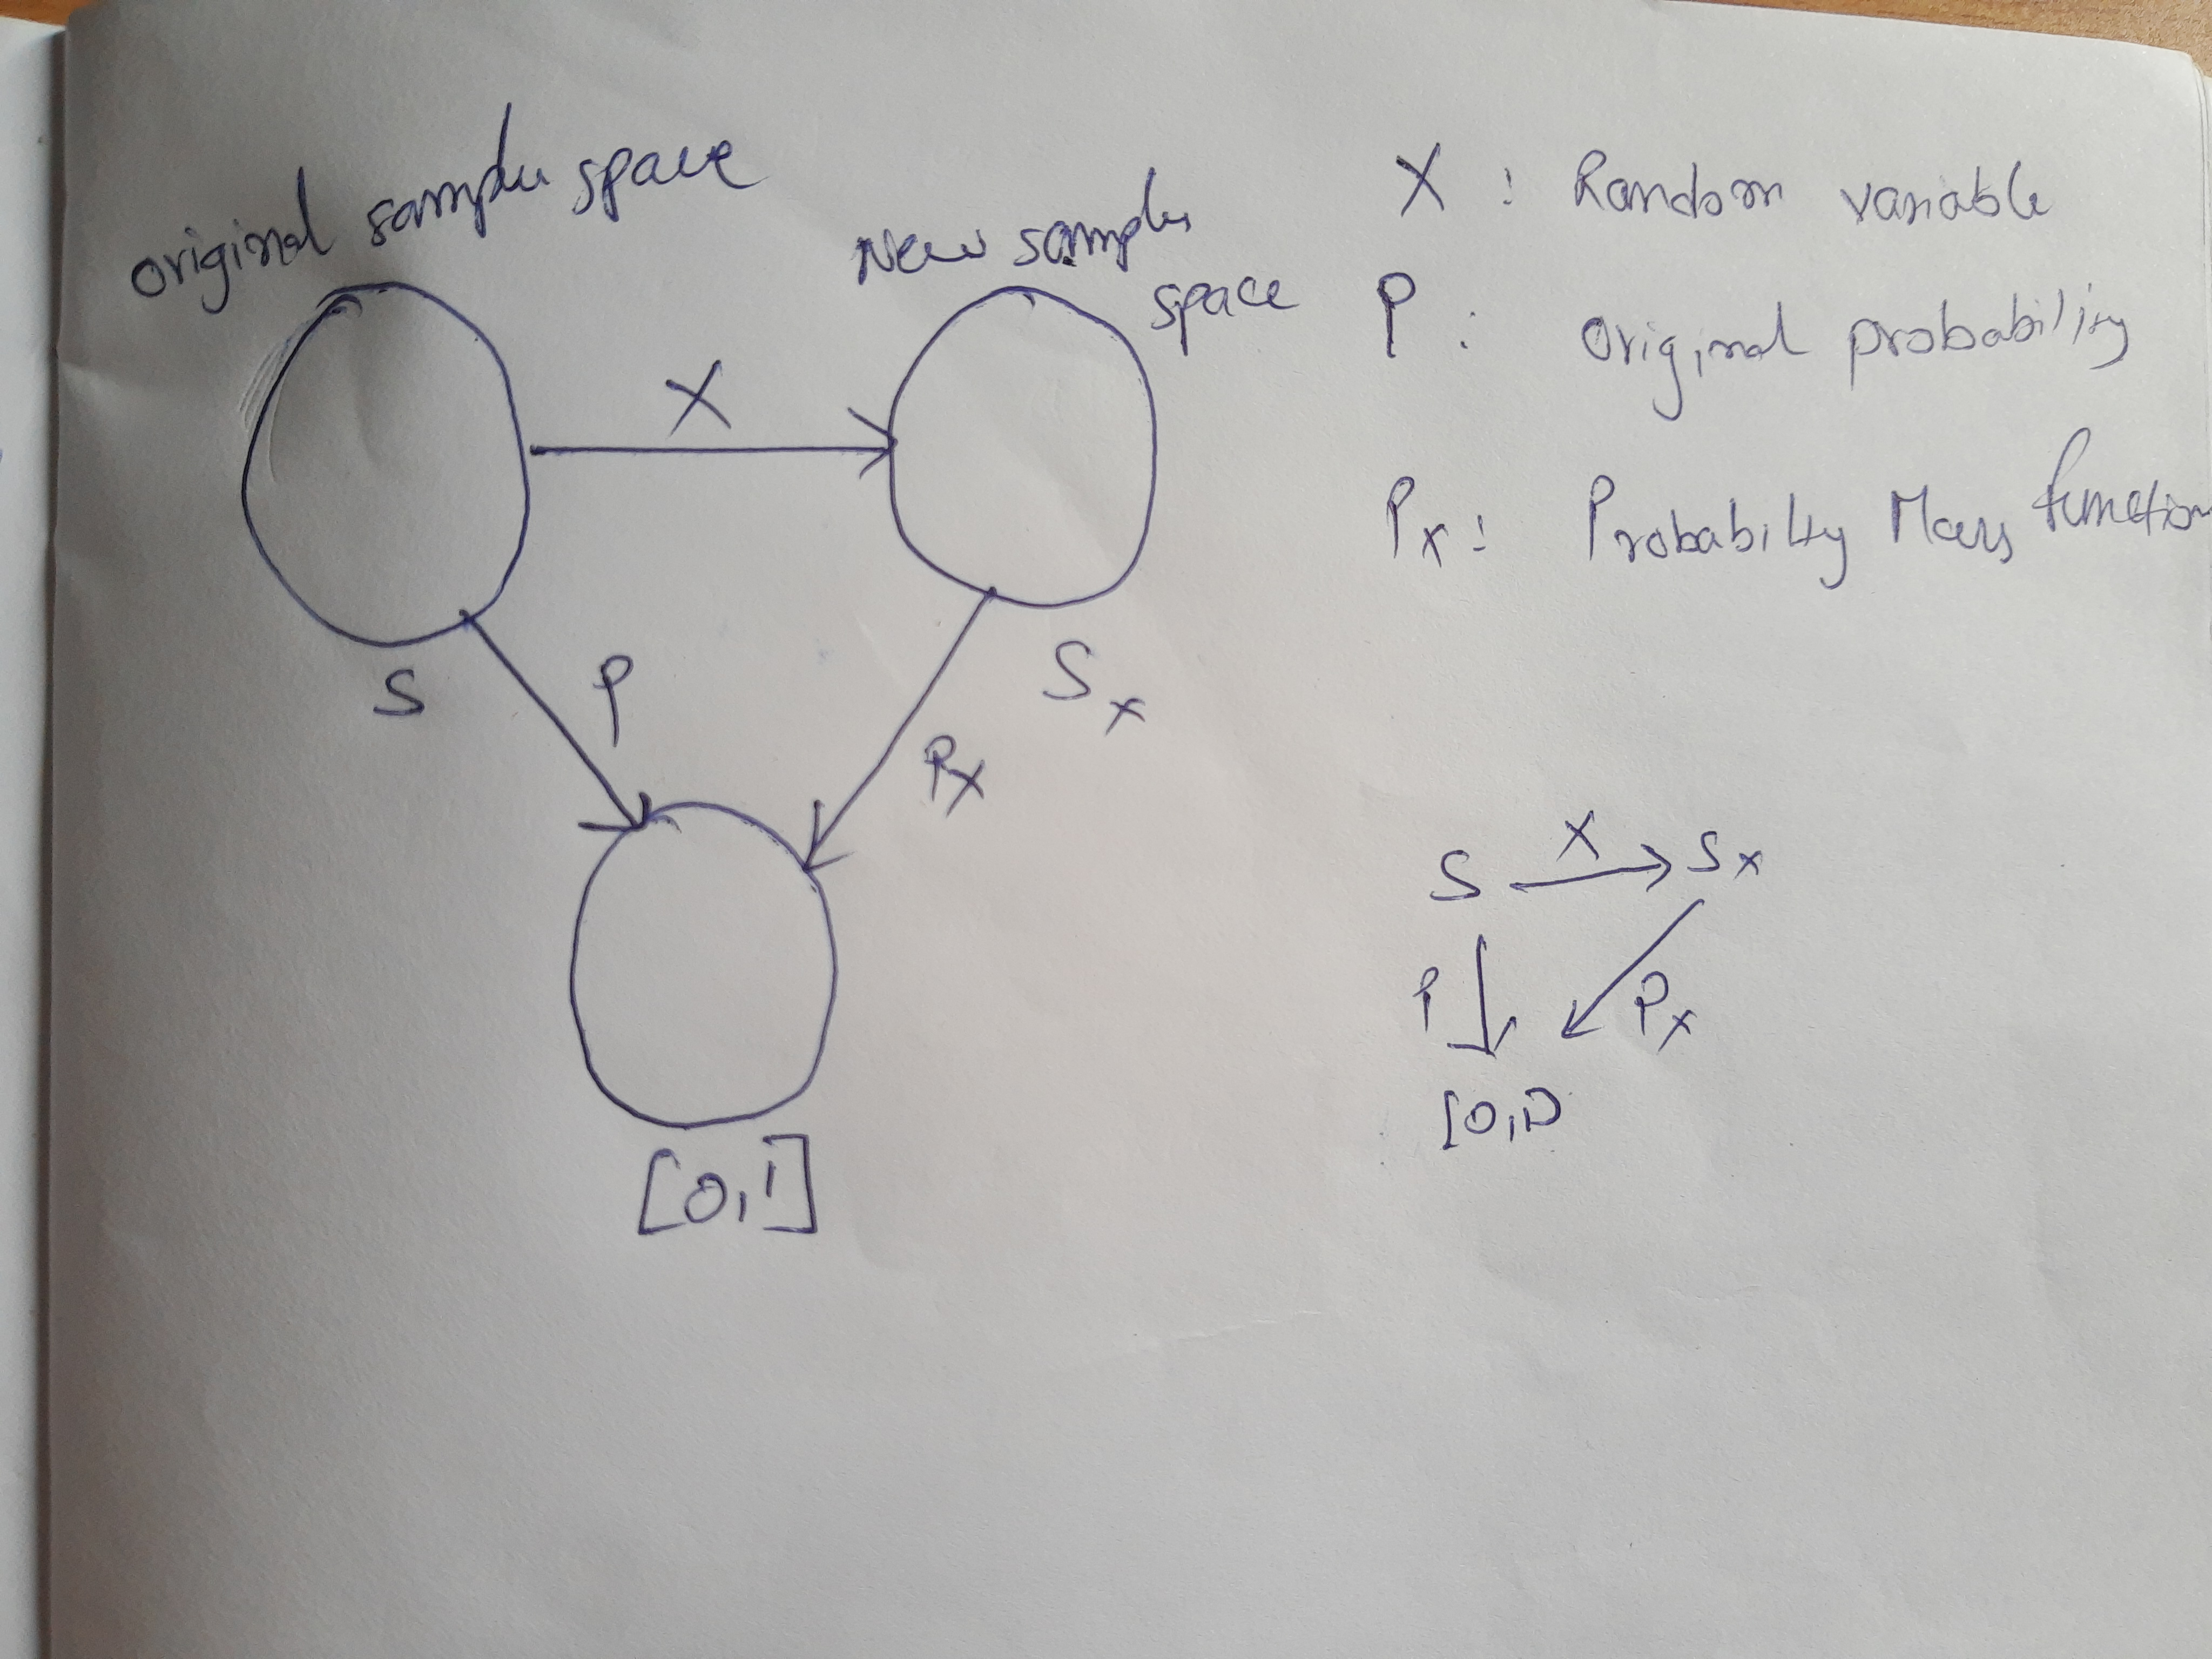 original sample space
New sample
space
X
S
P
Sx
Px
[0,1]
X : Random variable
P : Original probability
Px : Probability Mass function
S X Sx
P Px
[0,1]